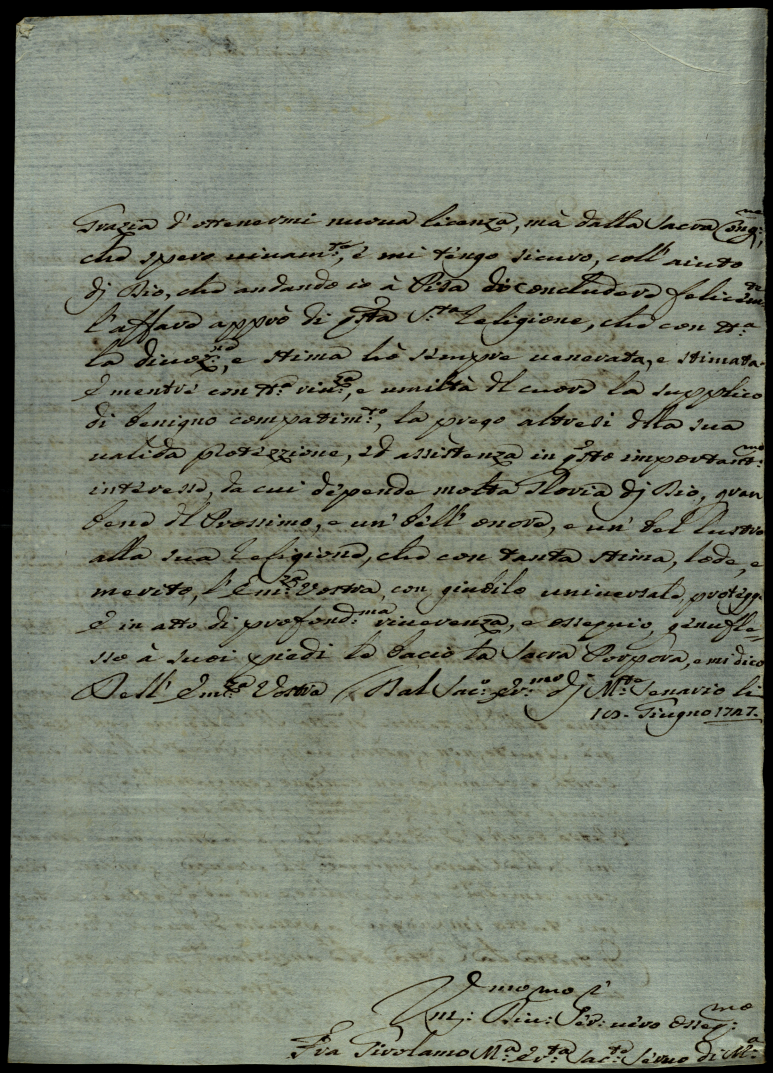 Grazia d'ottenermi nuova licenza, mà dalla Sacra Cong:ne,
che spero vivam:te, e mi tengo sicuro, coll'aiuto
dj Dio, che andando io à Pisa di concludere felicem:te
l'affare apprò di q'sta S:ta Religione, che con tt:a
la divoz:ne, e stima hò sempre venerata, e stimata.
E mentre con tt:a riv:za, e umiltà del cuore la supplico
di benigno compatim:to, la prego altresi della sua
valida protezzione, ed assistenza in q'sto important:mo
interesse, da cui dipende molta Gloria dj Dio, gran
bene del Prossimo, e un' bell'onore, e un' bel lustro
alla sua Religione, che con tanta stima, lode, e
merito, l'Em:za Vostra, con giubilo universale, protegge
E in atto di profond:ma riverenza, e ossequio, genufle-
sso à suoi piedi le bacio la Sacra Porpora, e mi dico
Dell'Em:za Vostra Dal Sac:o Er:mo dj M:te Senario li
10. Giugno 1747.
Um:mo Div:mo Ser: vero osseq:mo
Fra Girolamo M:a Er:ta Sac:te Servo di M:a